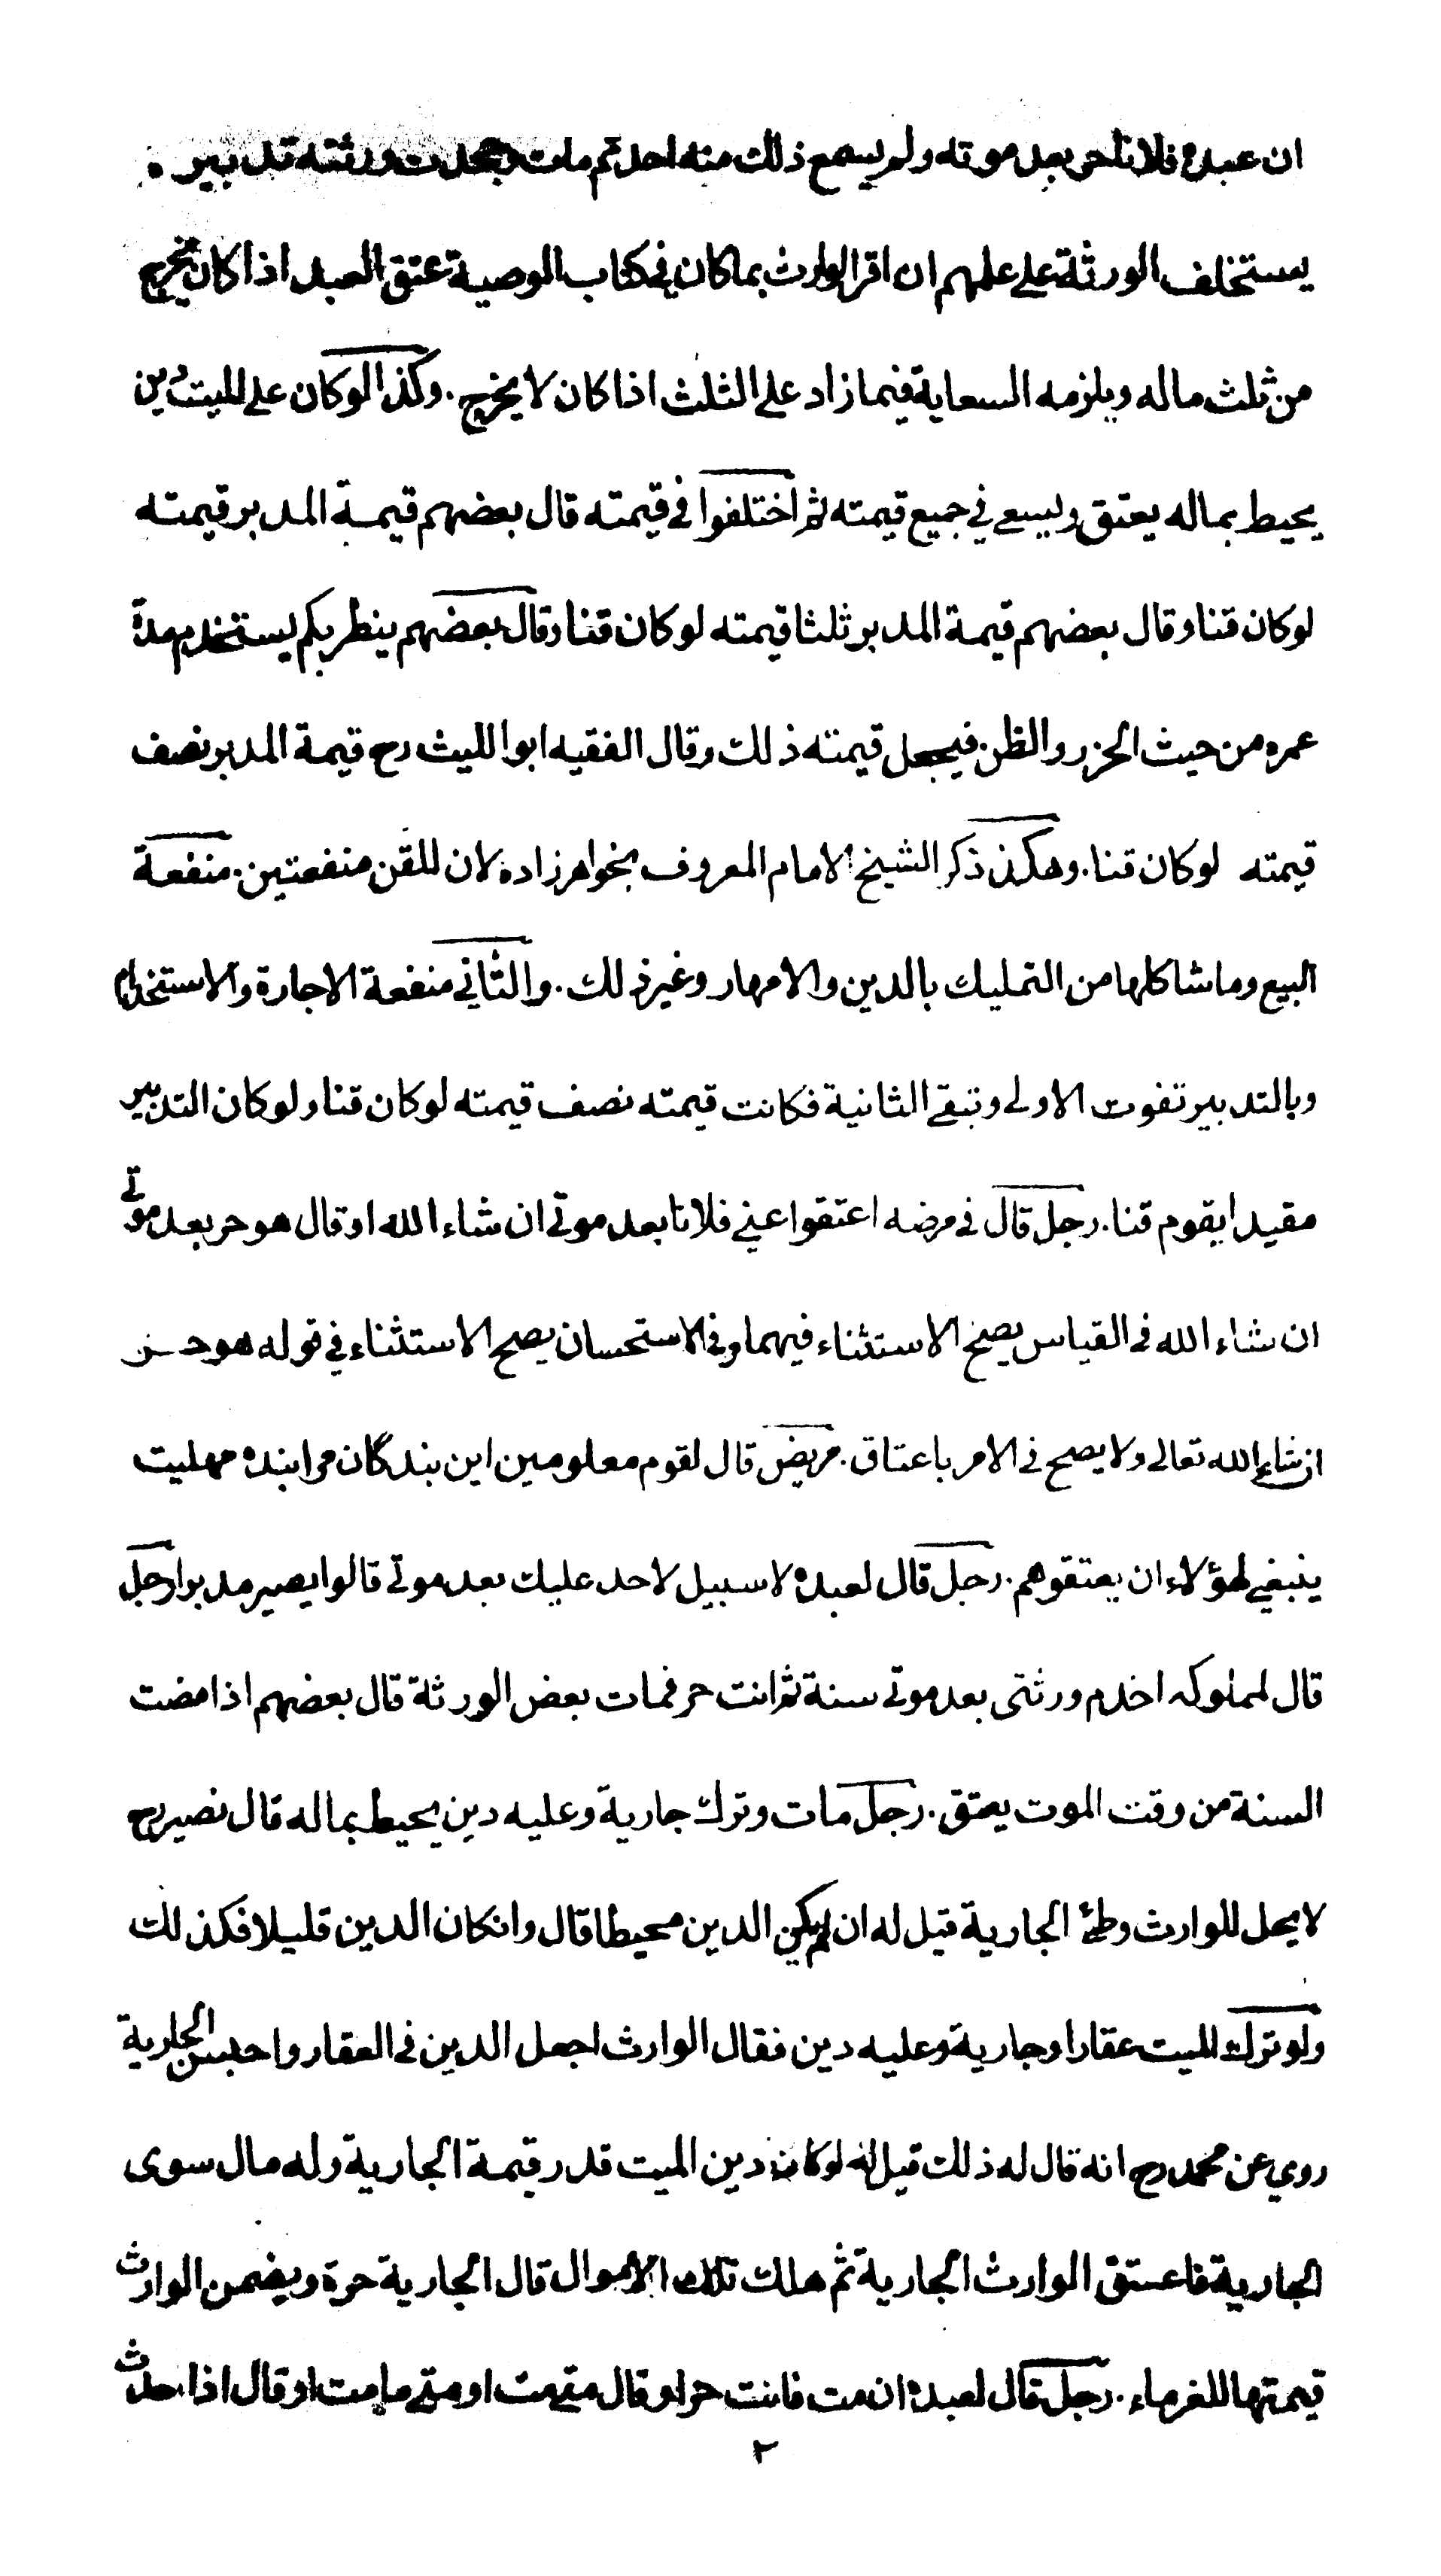 ان عبده فلانا حر بعد موته ولم يسمع ذلك منه احد ثم مات وجحدت ورثته تدبيره
يستخلف الورثة على علمهم ان اقر الوارث بما كان في كتاب الوصية عتق العبد اذا كان يخرج
من ثلث ماله ويلزمه السعاية فيما زاد على الثلث اذا كان لا يخرج. وكذا لو كان على الميت دين
يحيط بماله يعتق ويسعى في جميع قيمته ثم اختلفوا في قيمته قال بعضهم قيمة المدبر قيمته
لو كان قنا وقال بعضهم قيمة المدبر ثلثا قيمته لو كان قنا وقال بعضهم ينظر بكم يستخدم مدة
عمره من حيث الحزر والظن. فيجعل قيمته ذلك وقال الفقيه ابو الليث رح قيمة المدبر نصف
قيمته لو كان قنا. وهكذا ذكر الشيخ الامام المعروف بخواهر زاده لان للقن منفعتين. منفعة
البيع وما شاكلها من التمليك بالدين والامهار وغير ذلك. والثاني منفعة الاجارة والاستخدام
وبالتدبير تفوت الاولى وتبقى الثانية فكانت قيمته نصف قيمته لو كان قنا ولو كان التدبير
مقيدا يقوم قنا. رجل قال في مرضه اعتقوا عني فلانا بعد موتي ان شاء الله او قال هو حر بعد موتي
ان شاء الله في القياس يصح الاستثناء فيهما وفي الاستحسان يصح الاستثناء في قوله هو حر
ان شاء الله تعالى ولا يصح في الامر باعتاق. مريض قال لقوم معلومين اين بندگان مرا بنده مهليت
ينبغي لهؤلاء ان يعتقوهم. رجل قال لعبده لا سبيل لاحد عليك بعد موتي قالوا يصير مدبرا رجل
قال لمملوكه اخدم ورثتي بعد موتي سنة ثم انت حر فمات بعض الورثة قال بعضهم اذا مضت
السنة من وقت الموت يعتق. رجل مات وترك جارية وعليه دين يحيط بماله قال نصير رح
لا يحل للوارث وطئ الجارية قيل له ان لم يكن الدين محيطا قال وان كان الدين قليلا فكذلك
ولو ترك الميت عقارا وجارية وعليه دين فقال الوارث اجعل الدين في العقار واحبس الجارية
روي عن محمد رح انه قال له ذلك قيل له لو كان دين الميت قدر قيمة الجارية وله مال سوى
الجارية فاعتق الوارث الجارية ثم هلك تلك الاموال قال الجارية حرة ويضمن الوارث
قيمتها للغرماء. رجل قال لعبده ان مت فانت حر او قال متى مت او متى ما مت او قال اذا حدث
٢